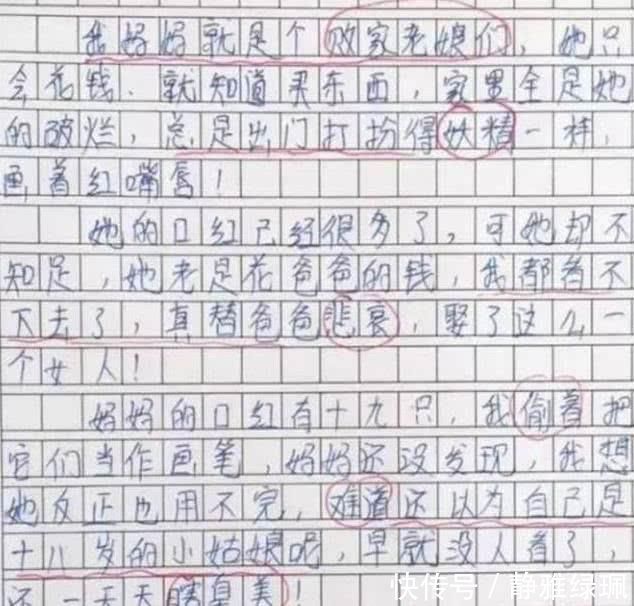 我妈妈就是个败家老娘们，她只
会花钱、就知道买东西，家里全是她
的破烂，总是出门打扮得妖精一样，
画着红嘴唇！
她的口红已经很多了，可她却不
知足，她老是花爸爸的钱，我都看不
下去了，真替爸爸悲哀，娶了这么一
个女人！
妈妈的口红有十九只，我偷着把
它们当作画笔，妈妈还没发现，我想
她反正也用不完，难道还以为自己是
十八岁的小姑娘呢，早就没人看了，
还一天天瞎臭美！
快传号／静雅绿珮